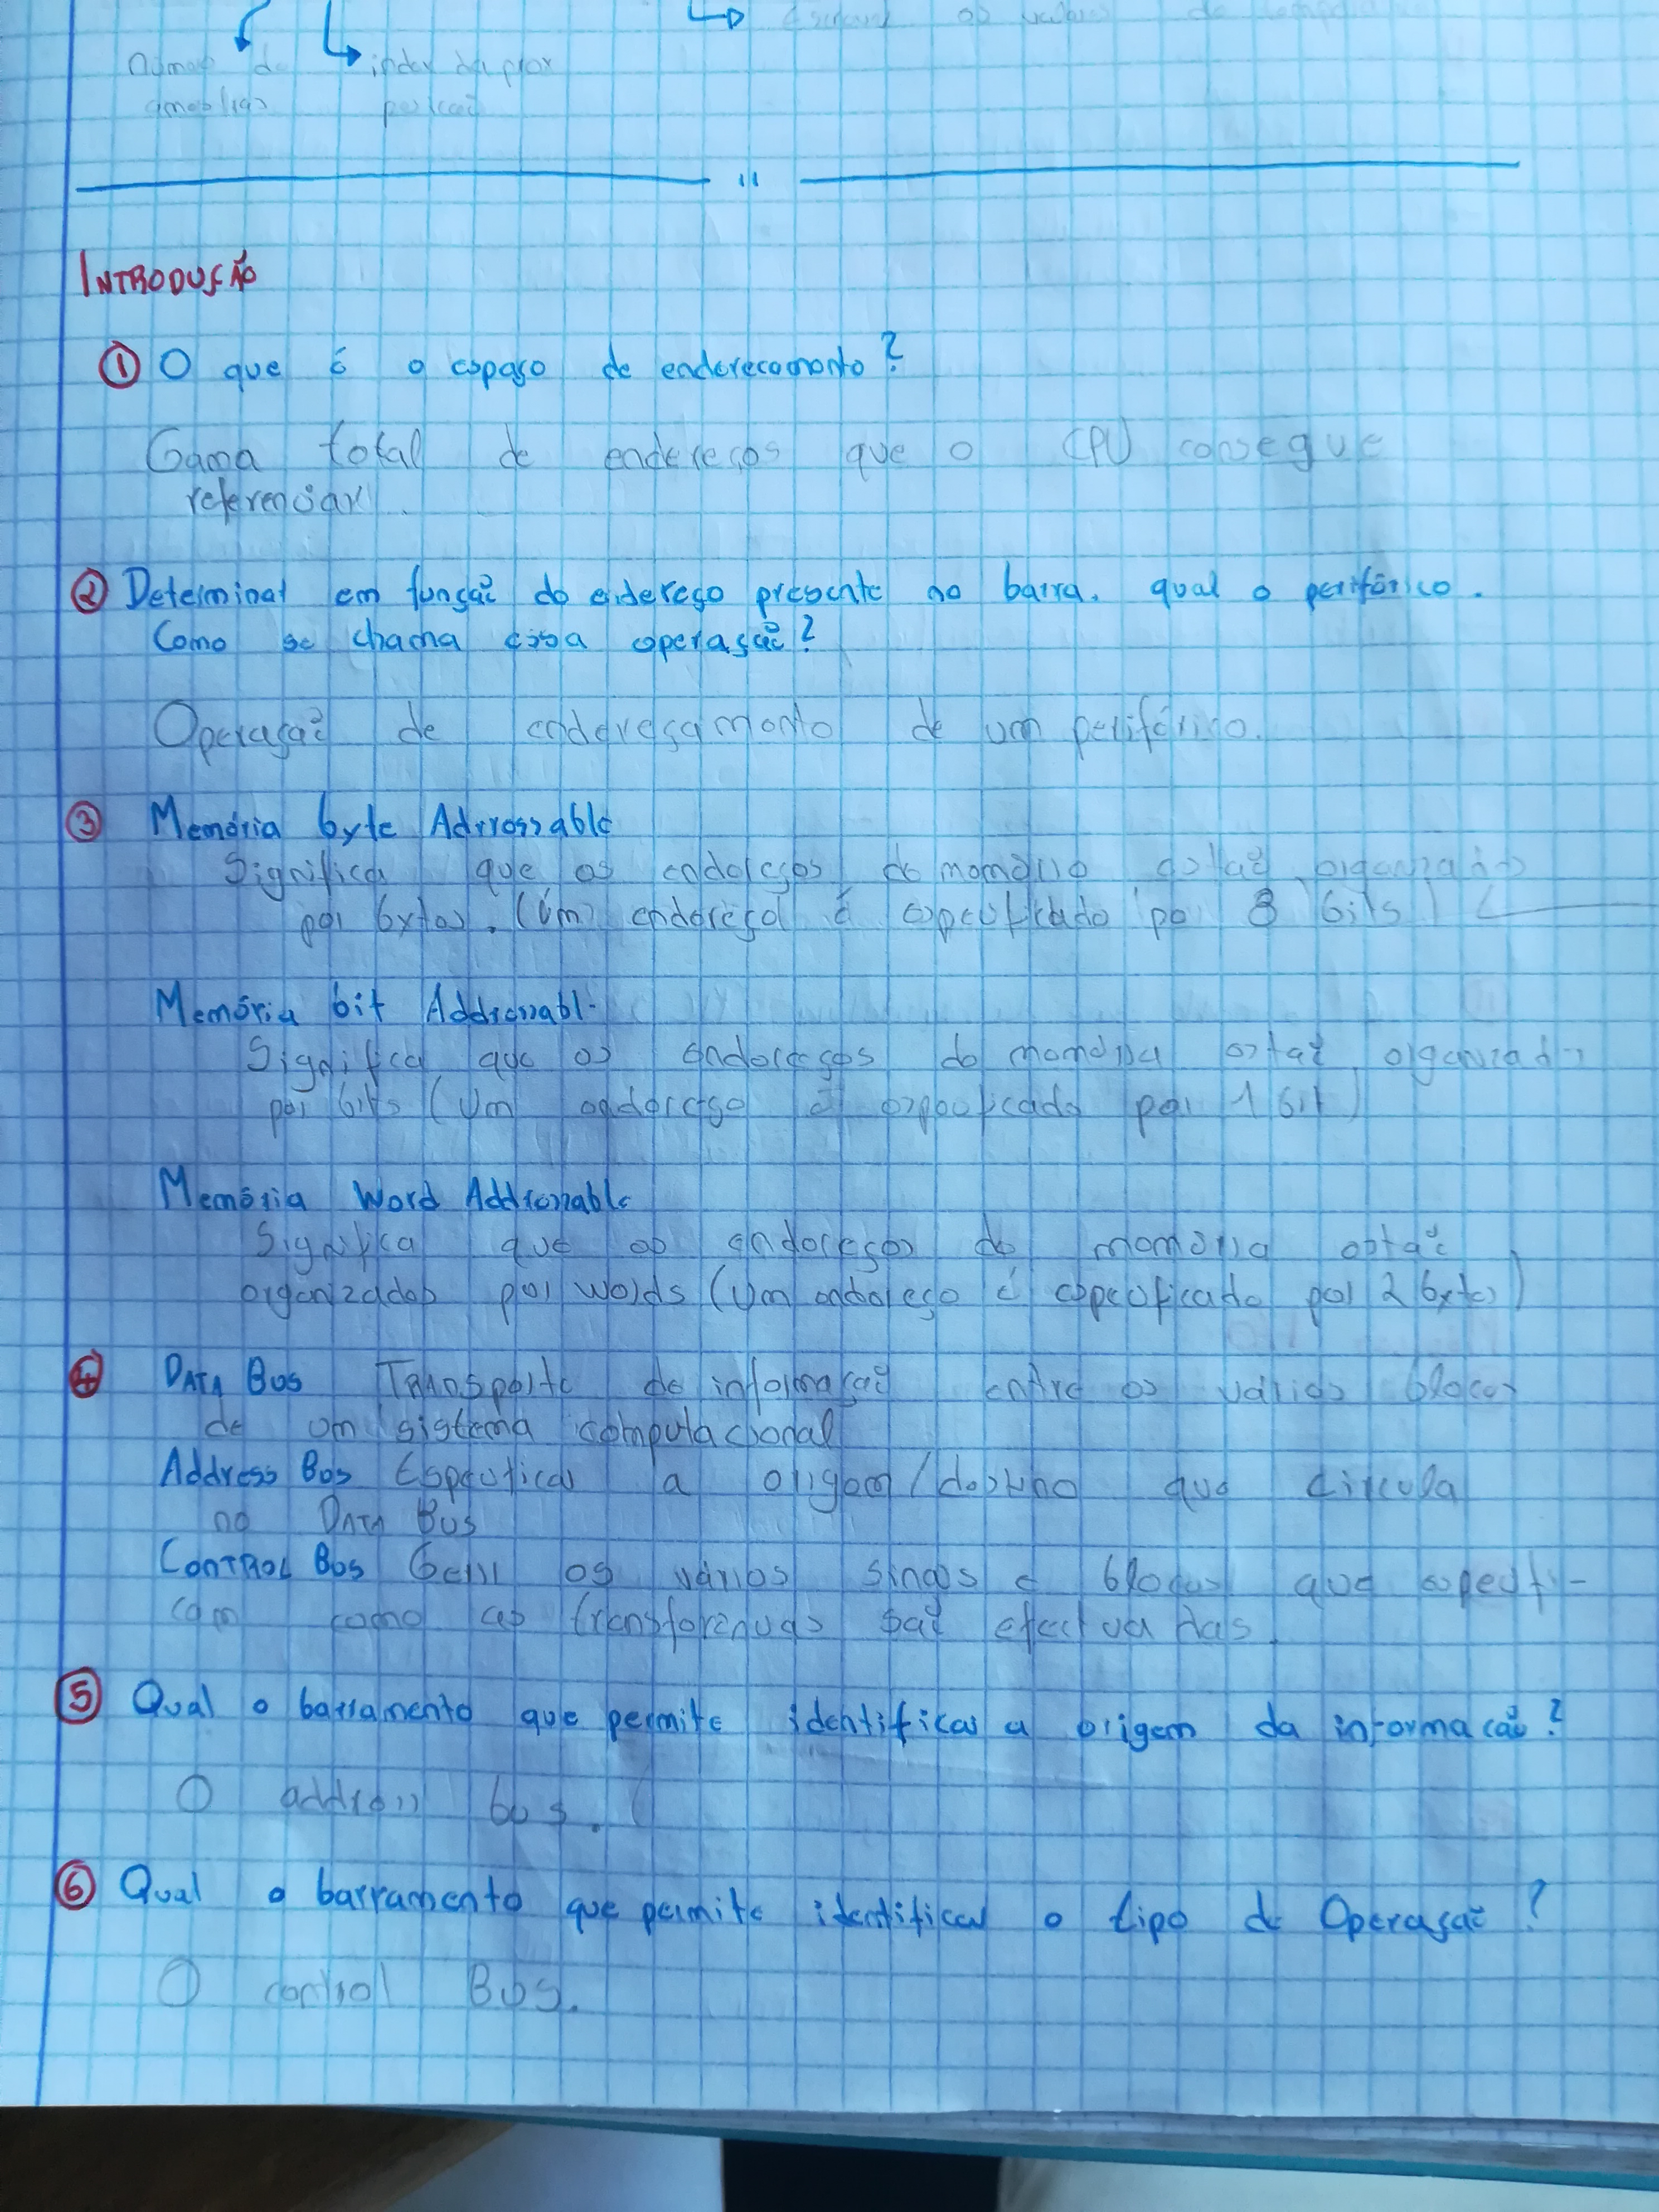 os valores de
número de index da prox
amostras posição
11
INTRODUÇÃO
① O que é o espaço de endereçamento?
Gama total de endereços que o CPU consegue
referenciar.
② Determinar em função do endereço presente no barra. qual o periférico.
Como se chama essa operação?
Operação de endereçamento de um periférico.
③ Memória byte Adrressable
Significa que os endereços de memória estão organizados
por bytes. (Um endereço é especificado por 8 bits)
Memória bit Addressabl-
Significa que os endereços de memória estão organizados
por bits (Um endereço é especificado por 1 bit)
Memória Word Addressable
Significa que os endereços de memória estão
organizados por words (Um endereço é especificado por 2 bytes)
④ DATA BUS Transporte de informação entre os vários blocos
de um sistema computacional
Address Bus Especifica a origem/destino que circula
no DATA BUS
CONTROL BUS os vários sinais e blocos que especifi-
cam como as transferências são efectuadas.
⑤ Qual o barramento que permite identificar a origem da informação?
O address bus.
⑥ Qual o barramento que permite identificar o tipo de Operação?
O control Bus.